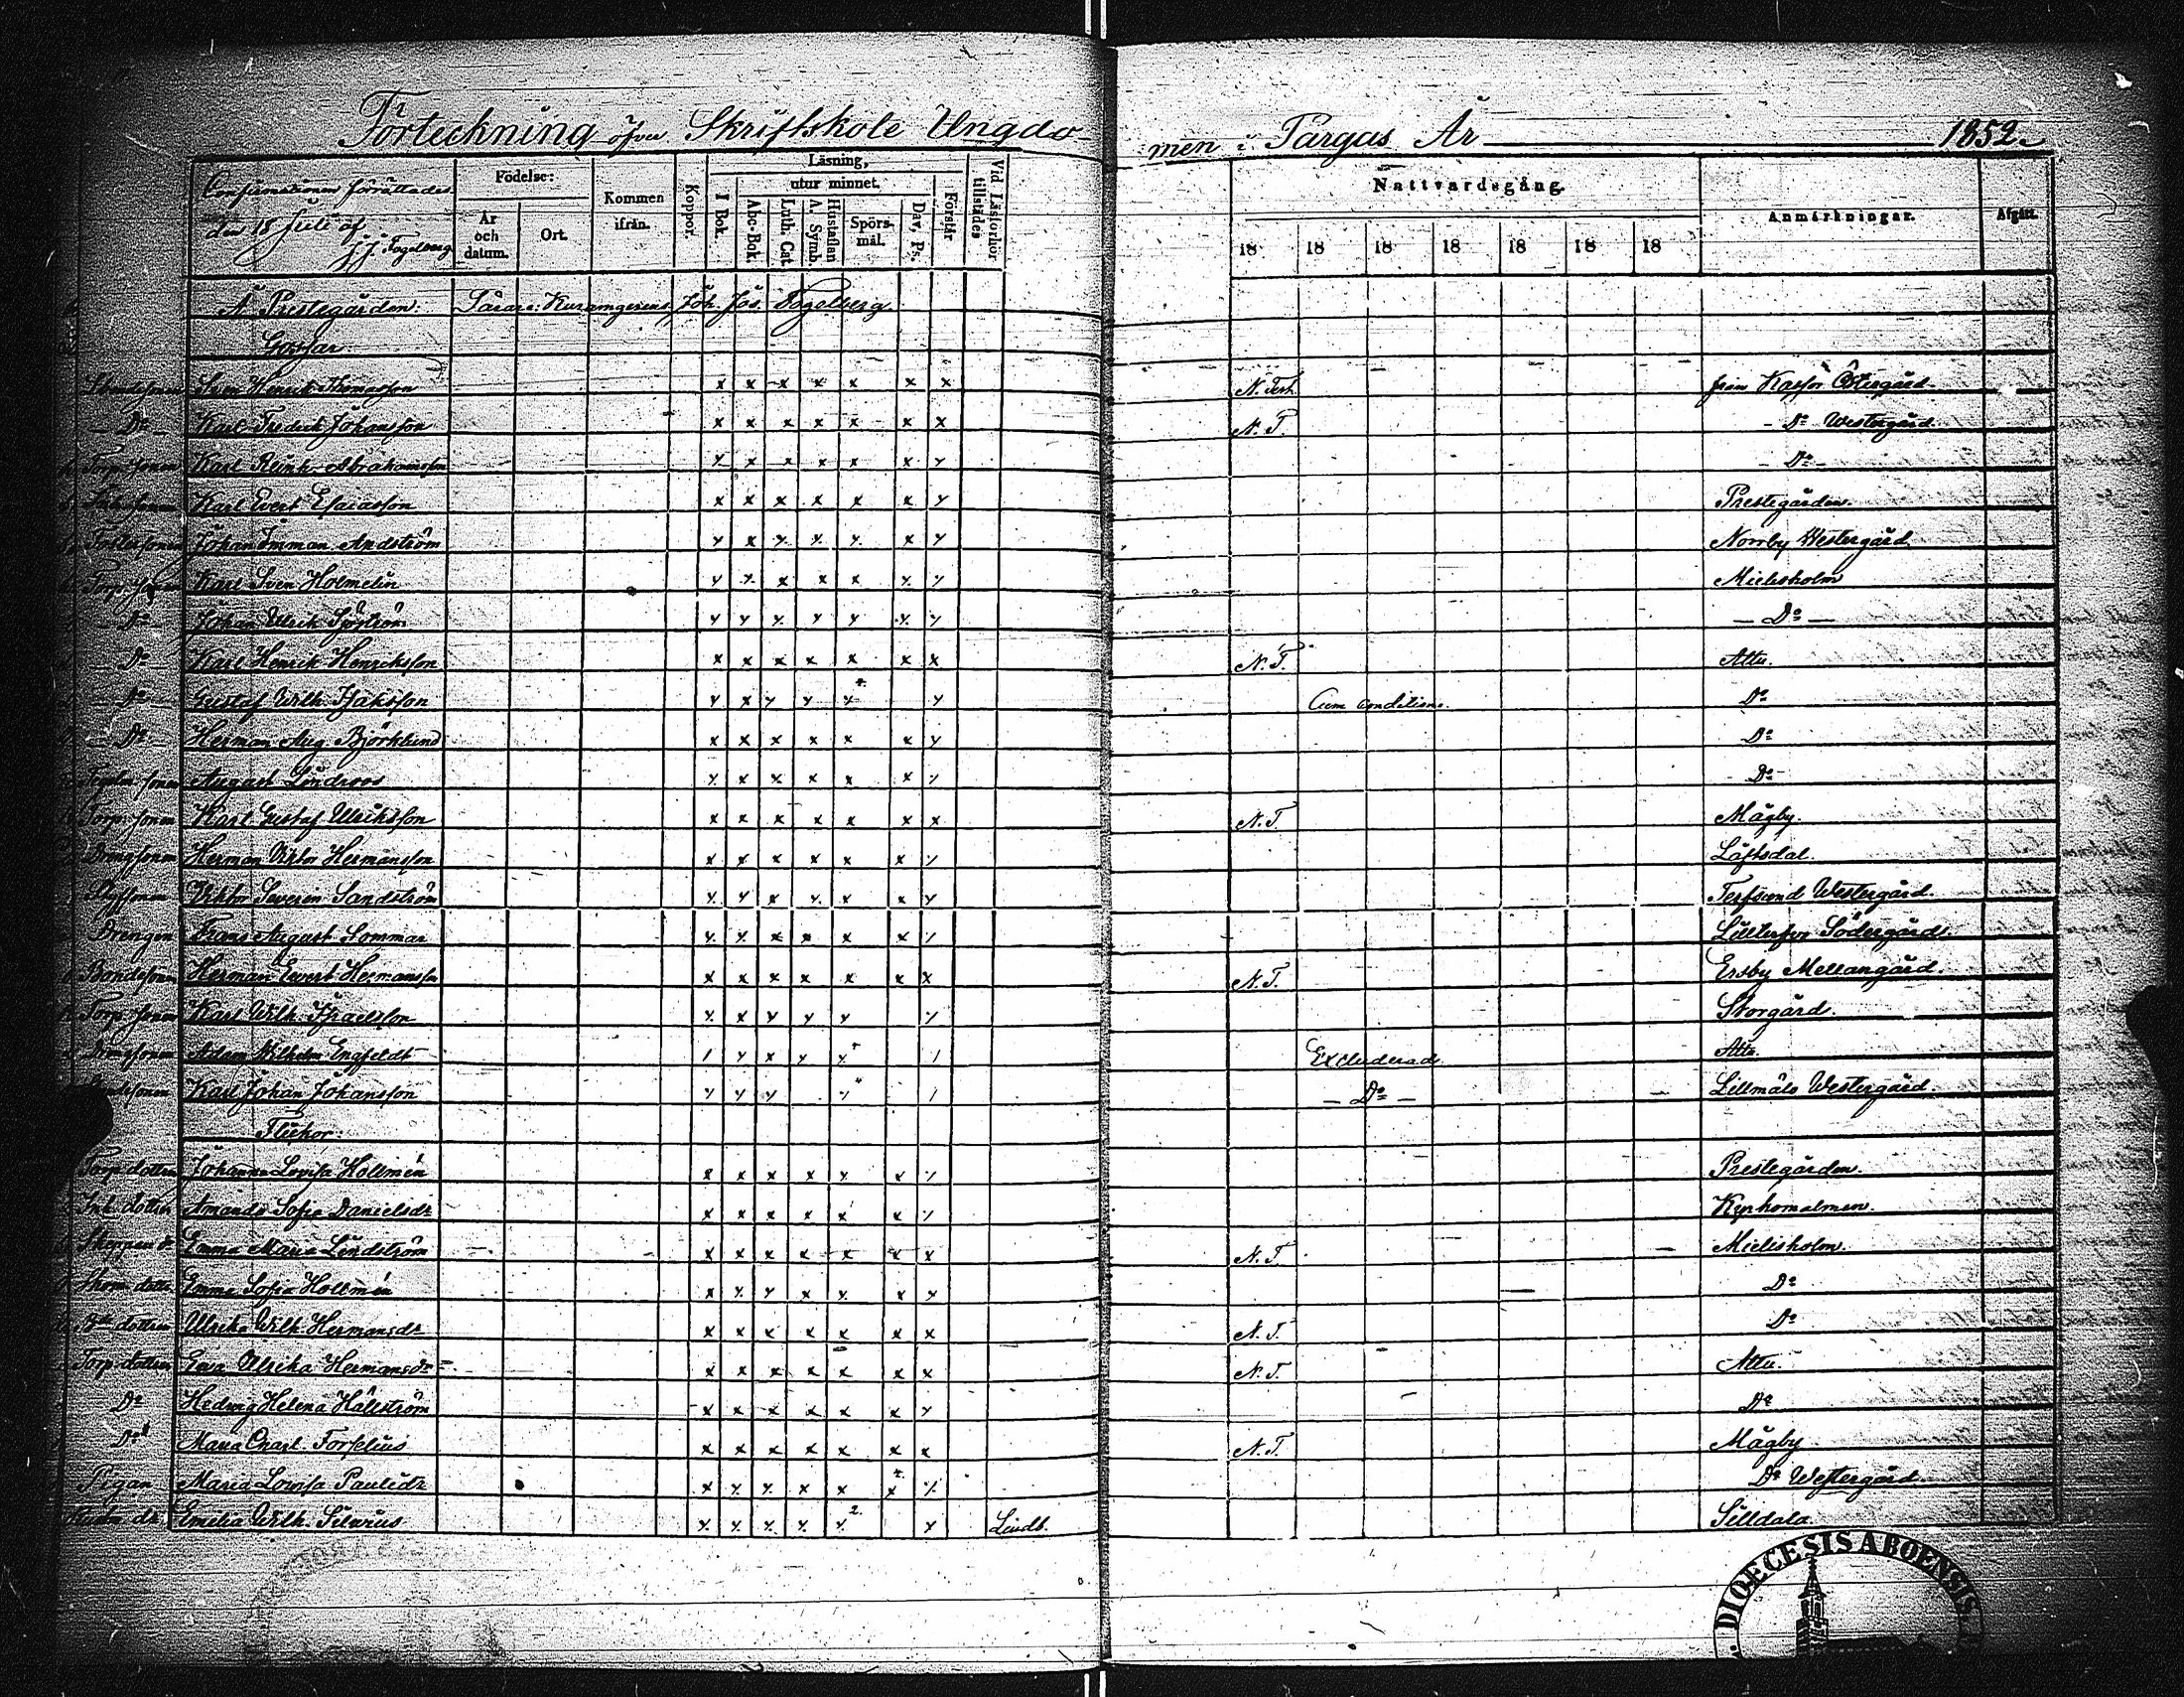 Förteckning öfver Skriftskole Ungdo
men i Pargas År 1852.
Confirmationen förrättades
den 18 Juli af
J. J. Fogelberg
Födelse:
År och datum.
Ort.
Kommen ifrån.
Koppor.
Läsning,
I Bok.
utur minnet.
Abc-Bok.
Luth. Cat.
A. Symb.
Hustaflan
Spörsmål.
Dav. Ps.
Förstår
Vid Läsförhör tillstädes
Nattvardsgång.
18 18 18 18 18 18 18
Anmärkningar.
Afgått.
Å Prestegården: Lärare: Joh. Jos. Fogelberg
Gossar
Sven Henrik Thomasson x x x x x x x N. Test. från Östergård
Do Karl Fredrik Johansson x x x x x x x N. T. Do Westergård
Torp. sonen Karl Reinh. Abrahamsson x x x x x x x Do
sonen Karl Evert Esaiasson x x x x x x x Prestegården.
Johan Imman. Andström x x x x x x x Norrby Westergård
Torp. sonen Karl Sven Holmelin x x x x x x x Mielisholm
Do Johan Ulrik Sjöström x x x x x x x Do
Do Karl Henrik Henriksson x x x x x x x N. T. Attu.
Do Gustaf Wilh. Isaksson x x x x x x Cum conditione. Do
Do Herman Aug. Björklund x x x x x x x Do
sonen August Lindroos x x x x x x x Do
Torp. sonen Karl Gustaf Ulriksson x x x x x x x N. T. Mågby.
Drengsonen Herman Viktor Hermansson x x x x x x x Löftsdal.
Viktor Severin Sandström x x x x x x x Terfsund Westergård.
Drengen Frans August Sommar x x x x x x x Södergård
Bondesonen Herman Evert Hermansson x x x x x x x N. T. Ersby Mellangård.
Torp. sonen Karl Wilh. Israelsson x x x x x x Storgård.
Drengsonen Adam Wilhelm Engfeldt / x x x x / Excluderad Attu.
Karl Johan Johansson x x x x / Do Lillmälö Westergård.
Flickor:
Torp. dottren Johanna Lovisa Hollmén x x x x x x x Prestegården.
Inh. dottren Amanda Sofia Danielsdr x x x x x x x Kyrkomalmen.
Emma Maria Lindström x x x x x x x N. T. Mielisholm.
Emma Sofia Hollmén x x x x x x x Do
dottren Ulrika Wilh. Hermansdr x x x x x x x N. T. Do
Torp. dottren Eva Ulrika Hermansdr x x x x x x x N. T. Attu.
Do Hedvig Helena Hällström x x x x x x x Do
Do Maria Charl. Forselius x x x x x x x N. T. Mågby
Pigan Maria Lovisa Paulidr x x x x x x x Do Westergård
Emelia Wilh. Silvrius x x x x x 2. x Lindb. Silldala
DIOECESIS ABOENSIS.